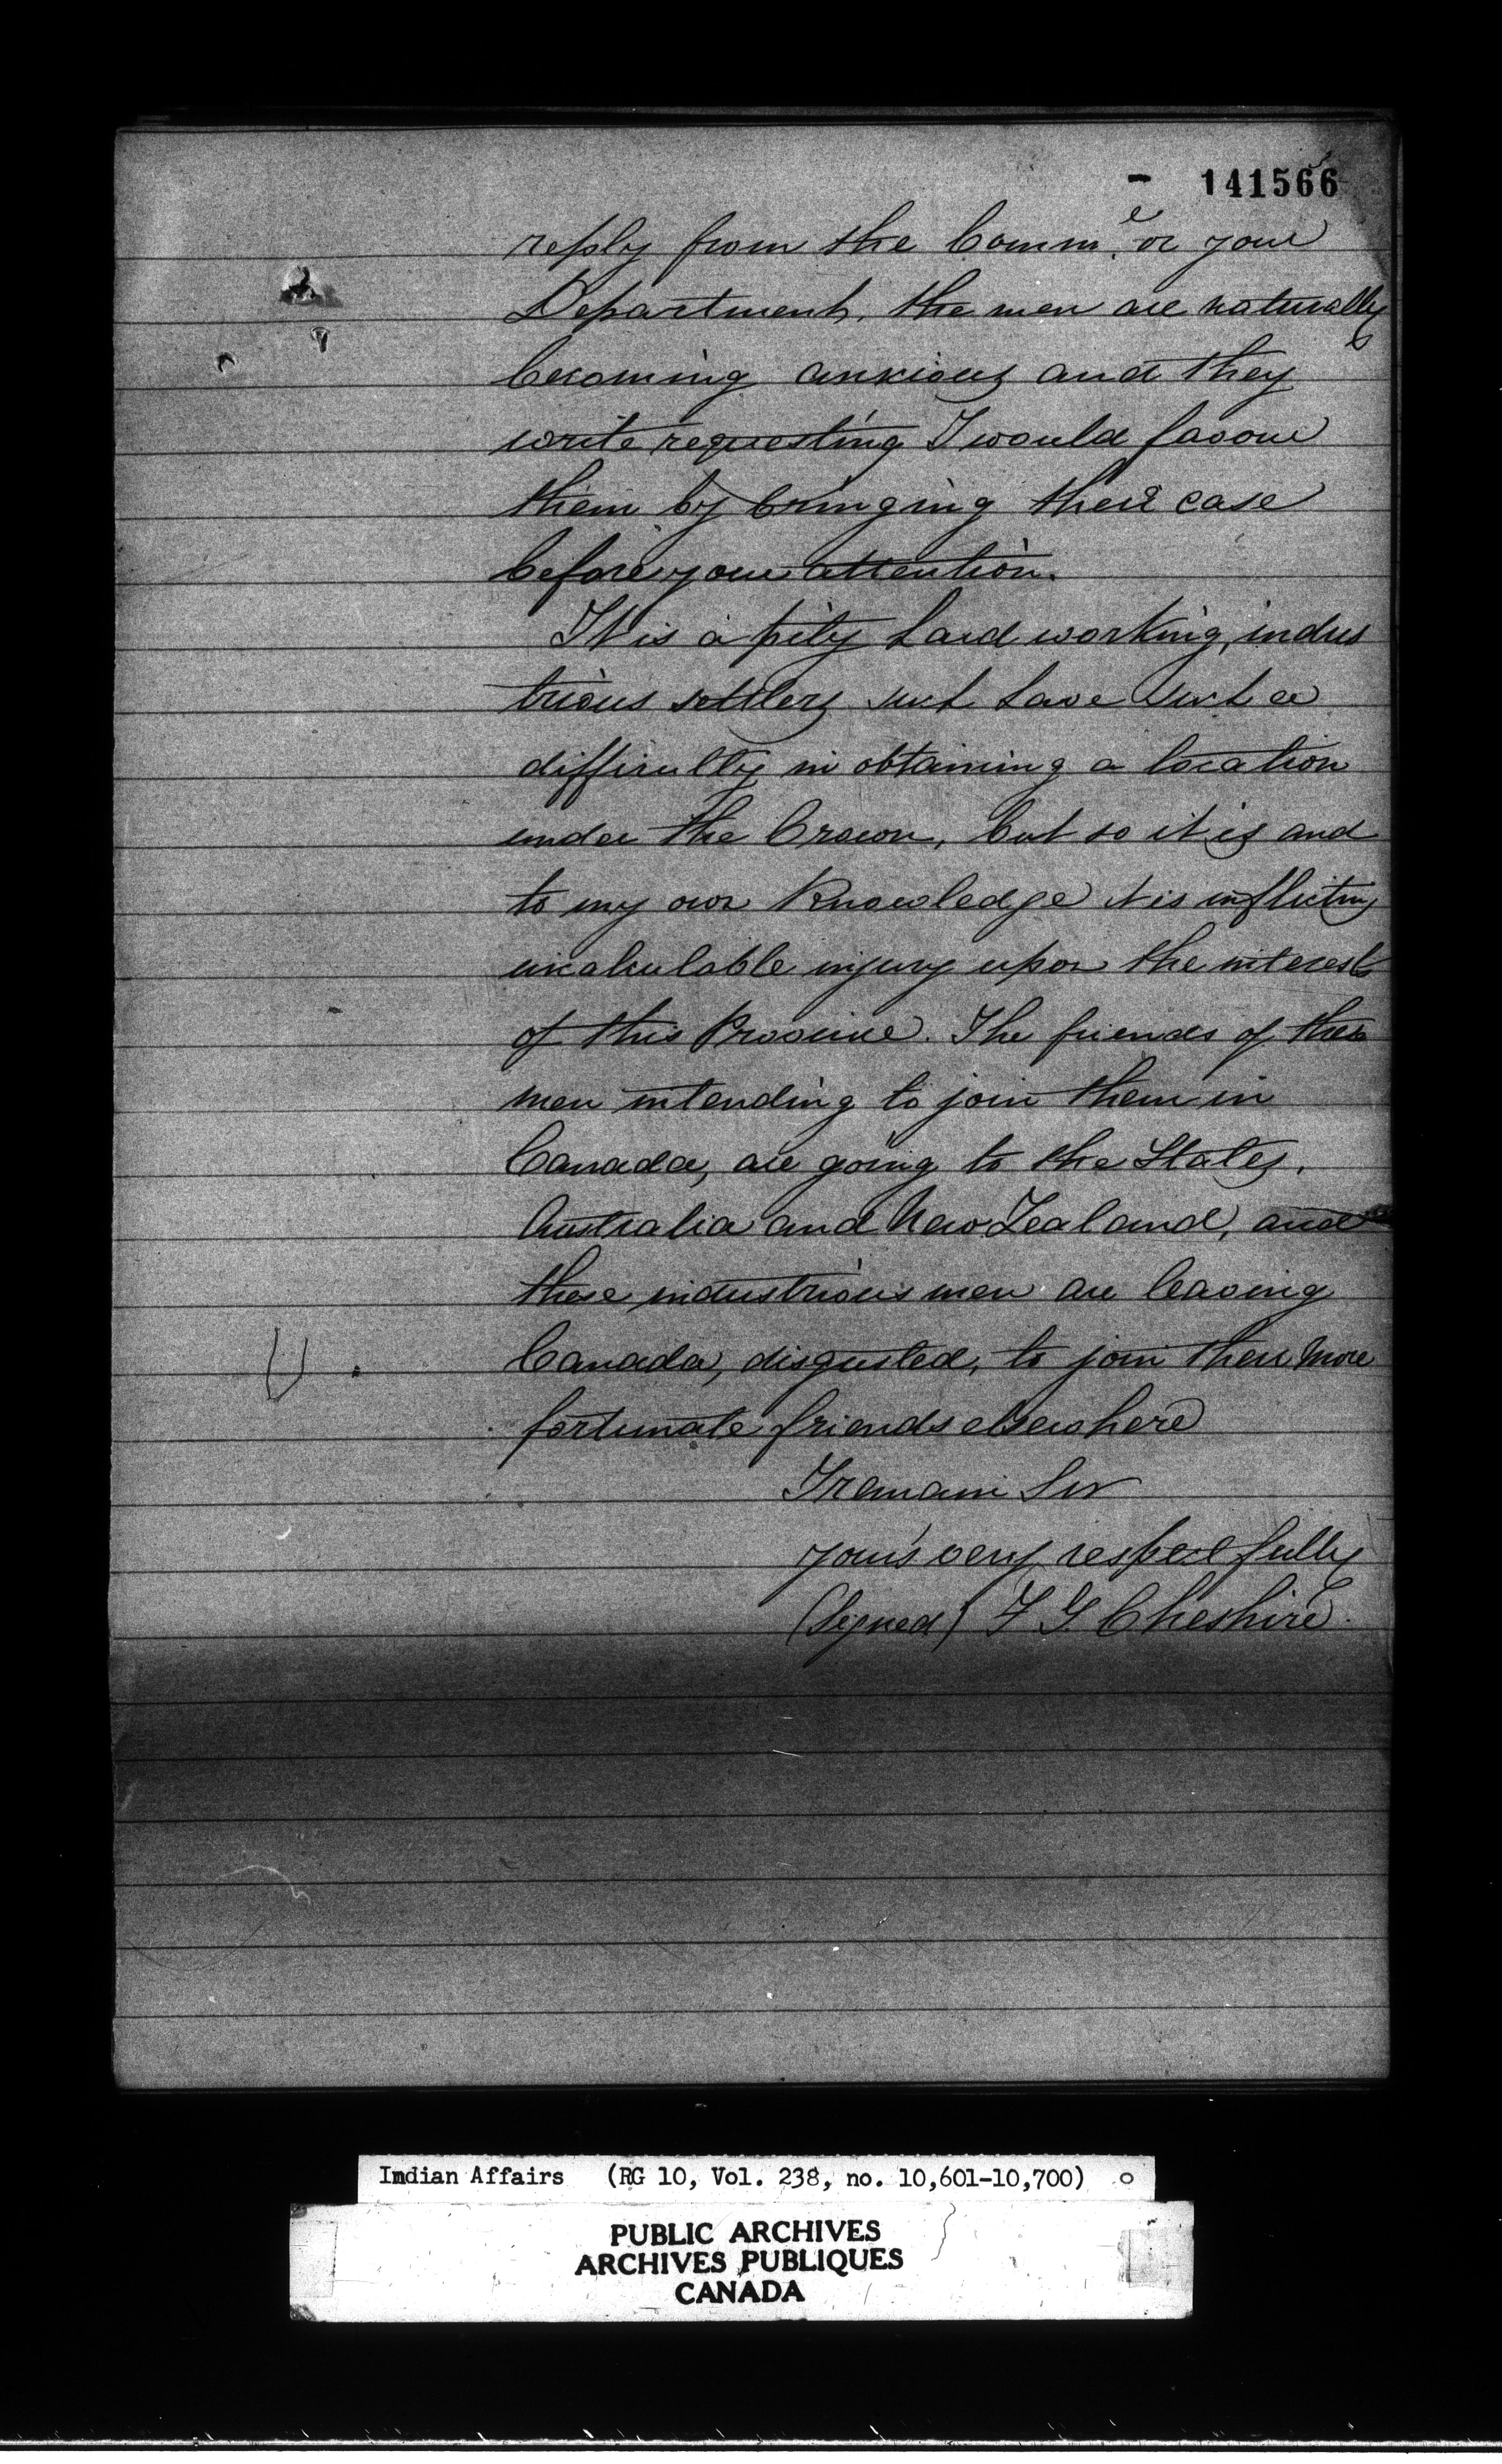 - 141566
reply from the Comm.e or your
Department, the men are naturally
becoming anxious and they
write requesting I would favour
them by bringing their case
before your attention.
It is a pity hard working, indus
trious settlers such have such a
difficulty in obtaining a location
under the Crown, but so it is and
to my own Knowledge it is inflicting
incalculable injury upon the interests
of this Province. The friends of these
men intending to join them in
Canada, are going to the States,
Australia and New Zealand, and
these industrious men are leaving
Canada, disgusted, to join their more
fortunate friends elsewhere
I remain Sir
your's very respectfully
(Signed) F G Cheshire.
Indian Affairs (RG 10, Vol. 238, no. 10,601-10,700)
PUBLIC ARCHIVES
ARCHIVES PUBLIQUES
CANADA